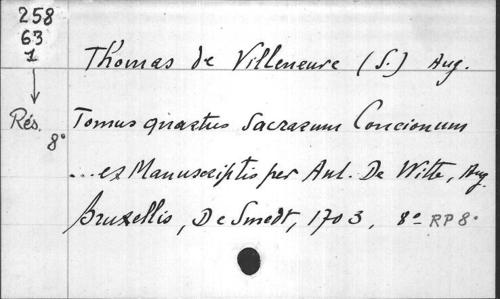 258
63
1
Thomas de Villeneuve (S.) Aug.
Rés. 8°
Tomus quartus Sacrarum Concionum
... ex Manuscriptis per Ant. De Witte, Aug.
Bruxellis, De Smedt, 1703, 8° RP 8°